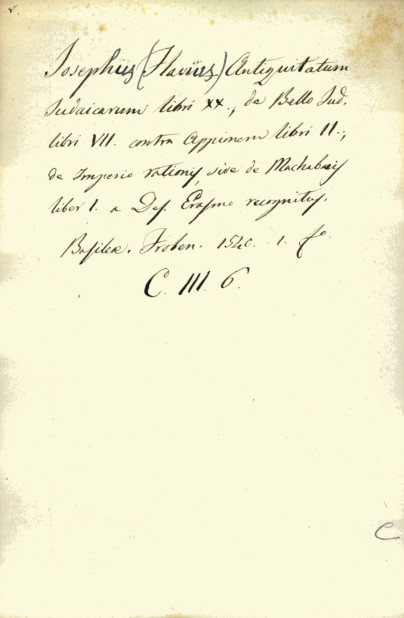 Josephus (Flavius) Antiquitatum
Judaicarum libri XX., de Bello Jud.
libri VII. contra Appionem libri II.,
de Imperio rationis, sive de Machabæis
liber I. a Des. Erasmo recognitus.
Basileæ. Froben. 1540. 1. fo.
C. III. 6.
C